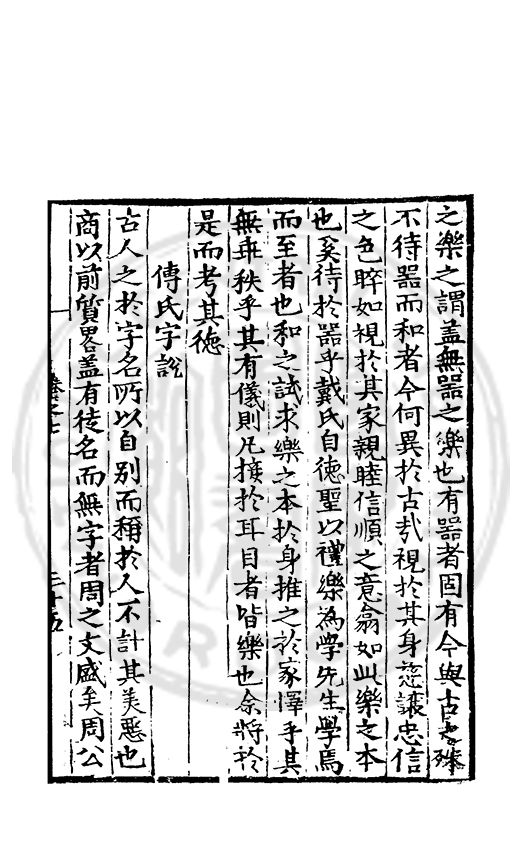 之樂之謂盖無器之樂也有器者固有今與古之殊
不待器而和者今何異於古㢤視於其身慈讓忠信
之色睟如視於其家親睦信順之意翕如此樂之本
也奚待於器乎戴氏自德聖以禮樂為學先生學焉
而至者也和之試求樂之本於身推之於家懌乎其
無乖秩乎其有儀則凡接於耳目者皆樂也余將於
是而考其德
傅氏字說
古人之於字名所以自别而稱於人不計其美惡也
商以前質畧盖有徒名而無字者周之文盛矣周公
卷之七
三十五